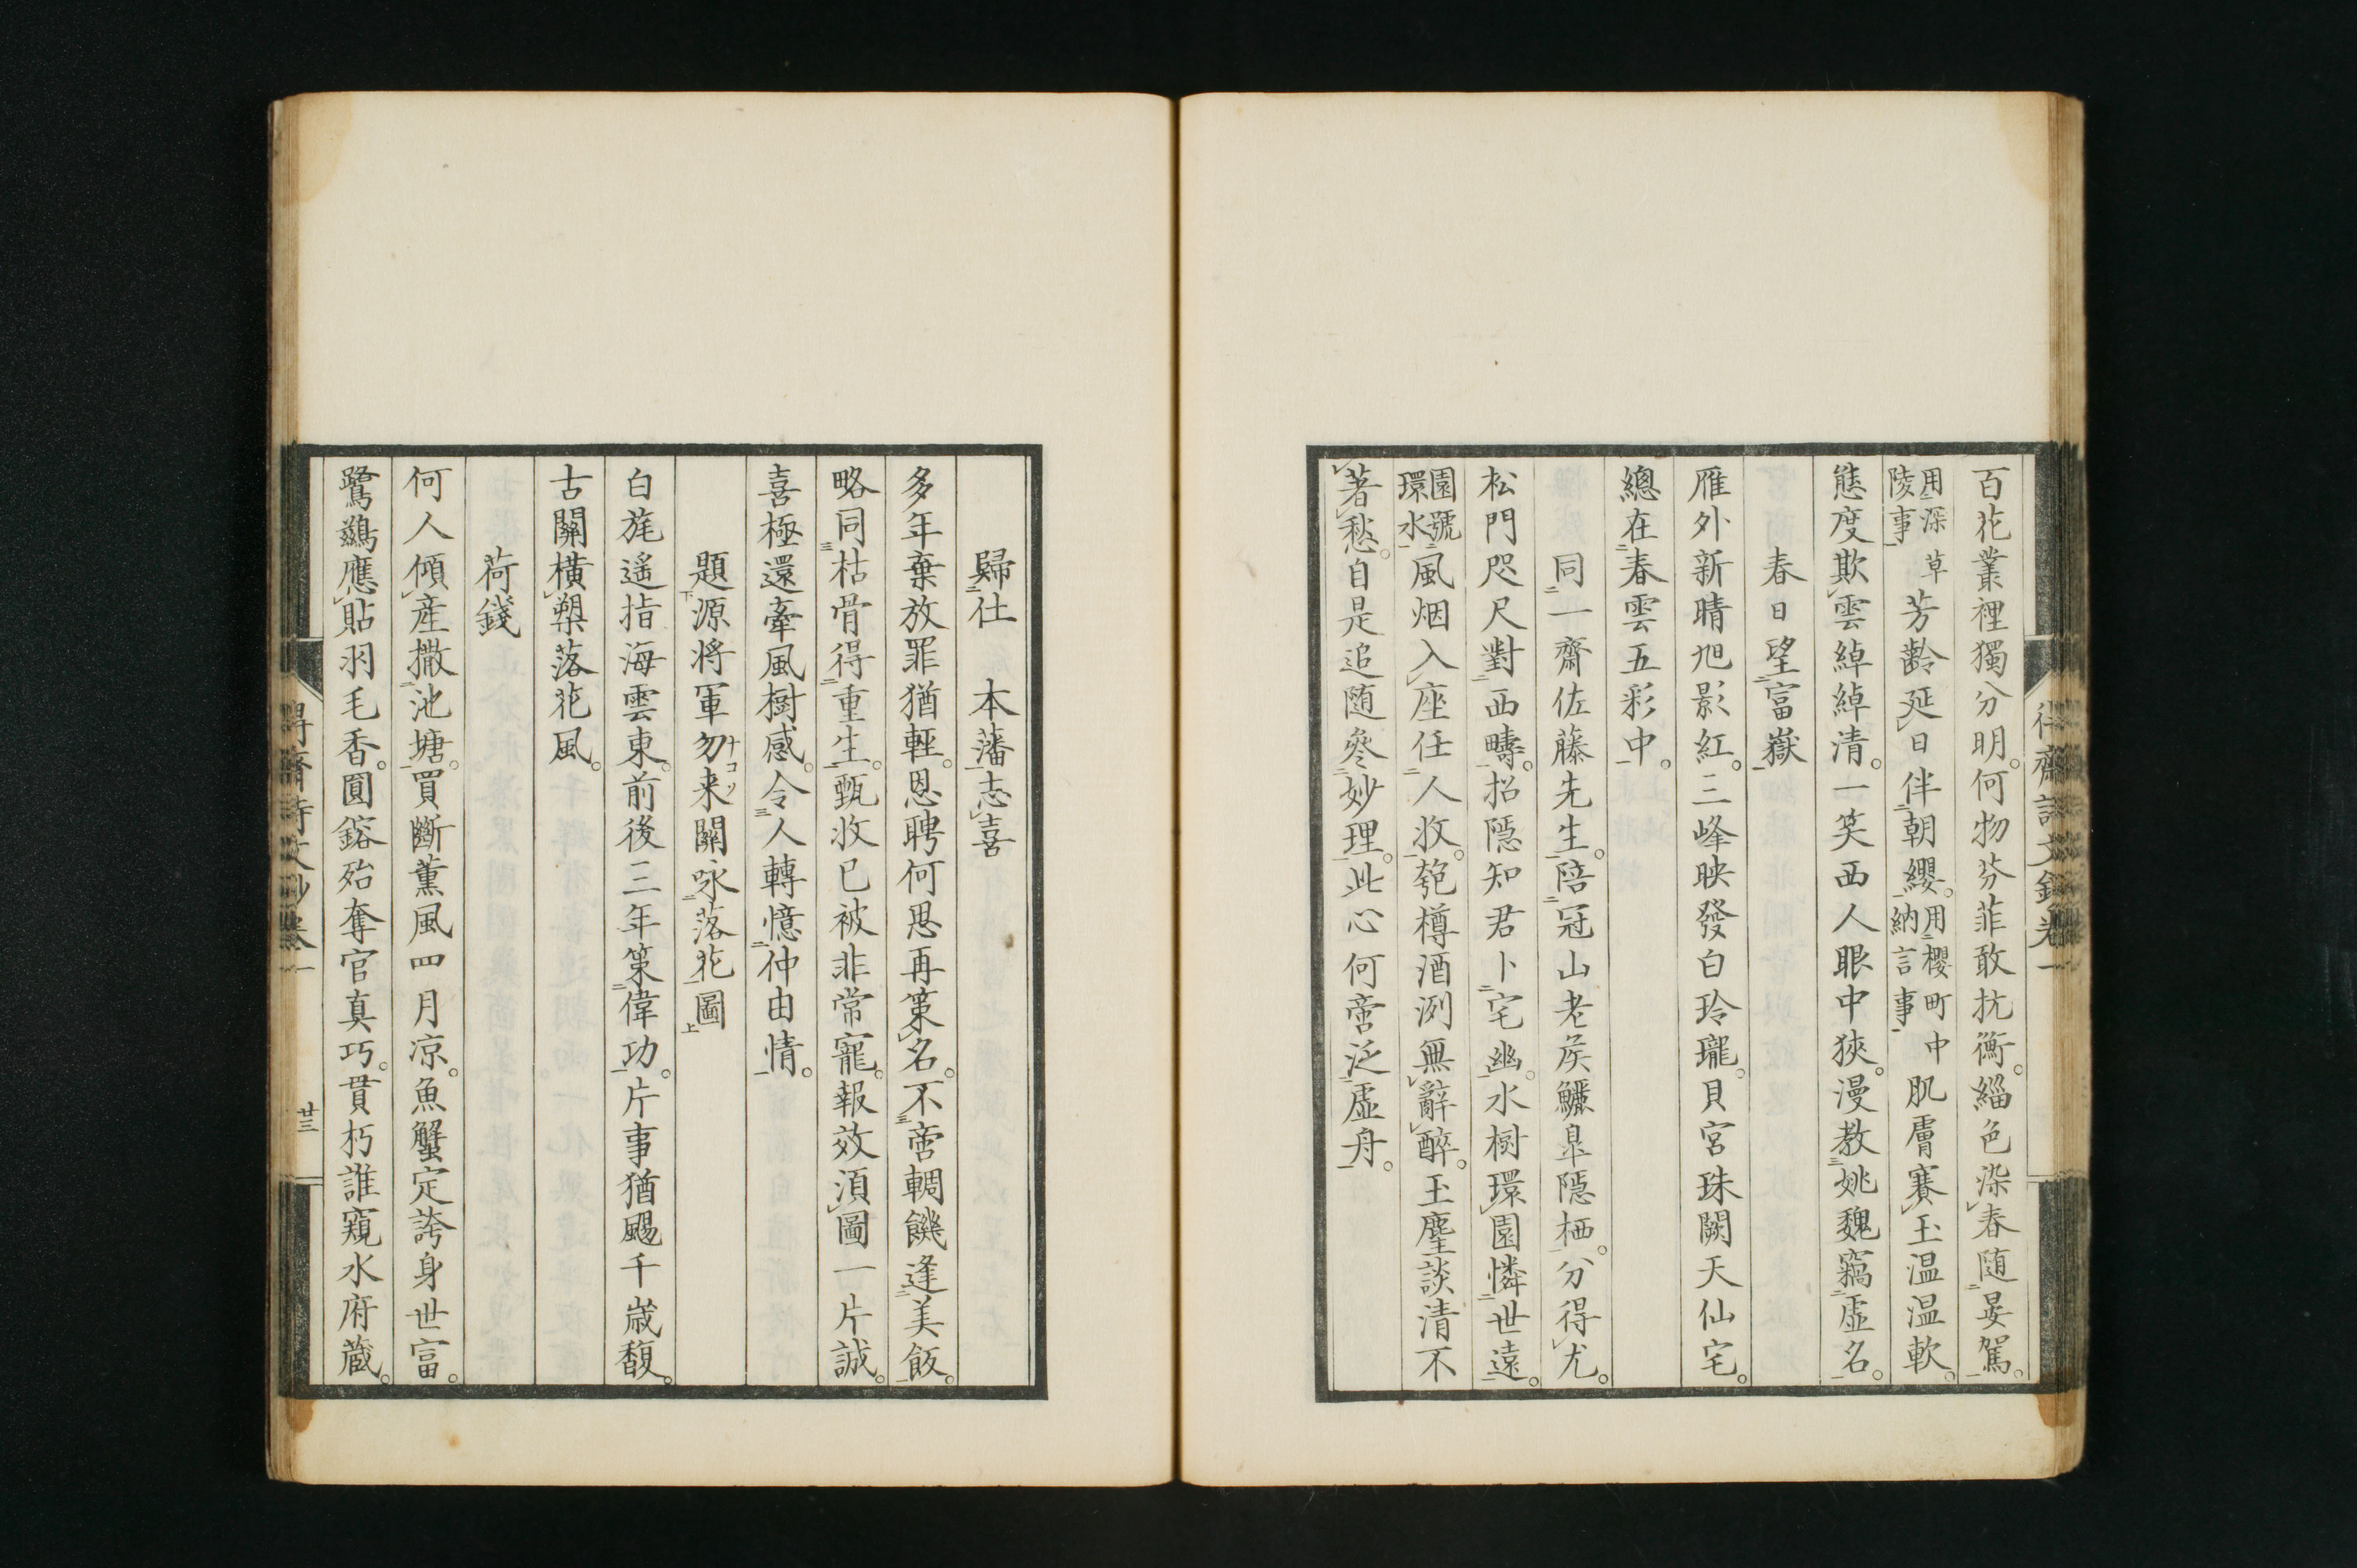 百花叢裡獨分明。何物芬菲敢抗衡。緇色染春随晏駕。
用深草陵事芳齡延日伴朝纓。用櫻町中納言事肌膚賽玉温温軟。
態度欺雲綽綽清。一笑西人眼中狹。漫教姚魏竊虛名。
春日望富嶽
雁外新晴旭影紅。三峰映發白玲瓏。貝宮珠闕天仙宅。
總在春雲五彩中。
同一齋佐藤先生。陪冠山老矦鱷皐隱栖。分得尤。
松門咫尺對西疇。招隱知君卜宅幽。水樹環園憐世遠。
園號環水風烟入座任人收。匏樽酒洌無辭醉。玉麈談清不
著愁。自是追随叅妙理。此心何啻泛虛舟。
歸仕 本藩志喜
多年棄放罪猶輕。恩聘何思再策名。不啻輖饑逢美飯。
略同枯骨得重生。甄收已被非常寵。報效須圖一片誠。
喜極還牽風樹感。令人轉憶仲由情。
題源將軍勿来關咏落花圖
ナコソ
白旄遥指海雲東。前後三年策偉功。片事猶颺千歳馥。
古關橫槊落花風。
荷錢
何人傾産撒池塘。買斷薫風四月凉。魚蟹定誇身世富。
鷺鷀應貼羽毛香。圓鎔殆奪官真巧。貫朽誰窺水府蔵。
廿三